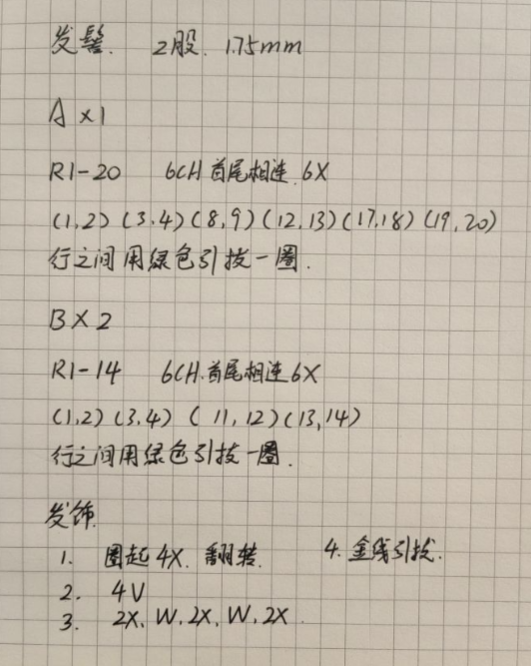 发髻. 2股. 1.75mm
A×1
R1-20 6CH首尾相连.6X
(1,2)(3.4)(8,9)(12,13)(17,18)(19,20)
行之间用绿色引拔一圈.
B×2
R1-14 6CH.首尾相连6X
(1,2)(3,4)(11,12)(13,14)
行之间用绿色引拔一圈.
发饰.
1. 圈起4X.翻转. 4.金线引拔.
2. 4V
3. 2X.W.2X.W.2X